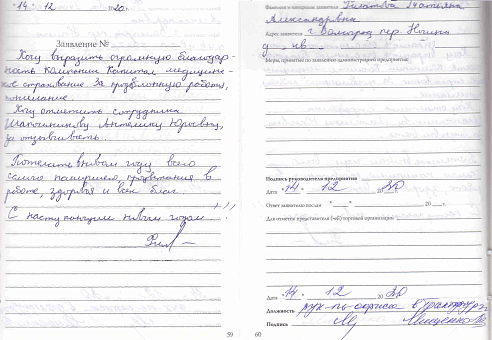 "14" 12 2020г.
Заявление №
Хочу выразить огромную благодар-
ность компании Капитал медицинс-
кое страхование. За проделанную работу,
внимание.
Хочу отметить сотрудника
Шапошникову Анжелику Юрьевну,
за отзывчивость.
Пожелать в новом году всего
самого наилучшего, продвижения в
работе, здоровья и всех благ.
С наступающим новым годом!!!
59
Фамилия и инициалы заявителя Татьяна
Александровна
Адрес заявителя г. Волгоград пер. Ногина
д. кв.
Меры, принятые по заявлению администрацией предприятия:
Подпись руководителя предприятия
Дата "14" 12 2020
Ответ заявителю послан "____" 20 г.
Для отметки представителя (-ей) торговой организации:
Дата "14" 12 2020
Должность рук-ль офиса
Подпись Мищенко
60